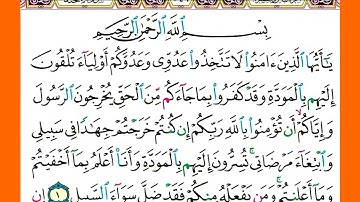 بِسْمِ اللَّهِ الرَّحْمَٰنِ الرَّحِيمِ
يَا أَيُّهَا الَّذِينَ ءَامَنُوا لَا تَتَّخِذُوا عَدُوِّي وَعَدُوَّكُمْ أَوْلِيَاءَ تُلْقُونَ
إِلَيْهِم بِالْمَوَدَّةِ وَقَدْ كَفَرُوا بِمَا جَاءَكُم مِّنَ الْحَقِّ يُخْرِجُونَ الرَّسُولَ
وَإِيَّاكُمْ أَن تُؤْمِنُوا بِاللَّهِ رَبِّكُمْ إِن كُنتُمْ خَرَجْتُمْ جِهَٰدًا فِي سَبِيلِي
وَابْتِغَاءَ مَرْضَاتِي تُسِرُّونَ إِلَيْهِم بِالْمَوَدَّةِ وَأَنَا أَعْلَمُ بِمَا أَخْفَيْتُمْ
وَمَا أَعْلَنتُمْ وَمَن يَفْعَلْهُ مِنكُمْ فَقَدْ ضَلَّ سَوَاءَ السَّبِيلِ ١ إِن